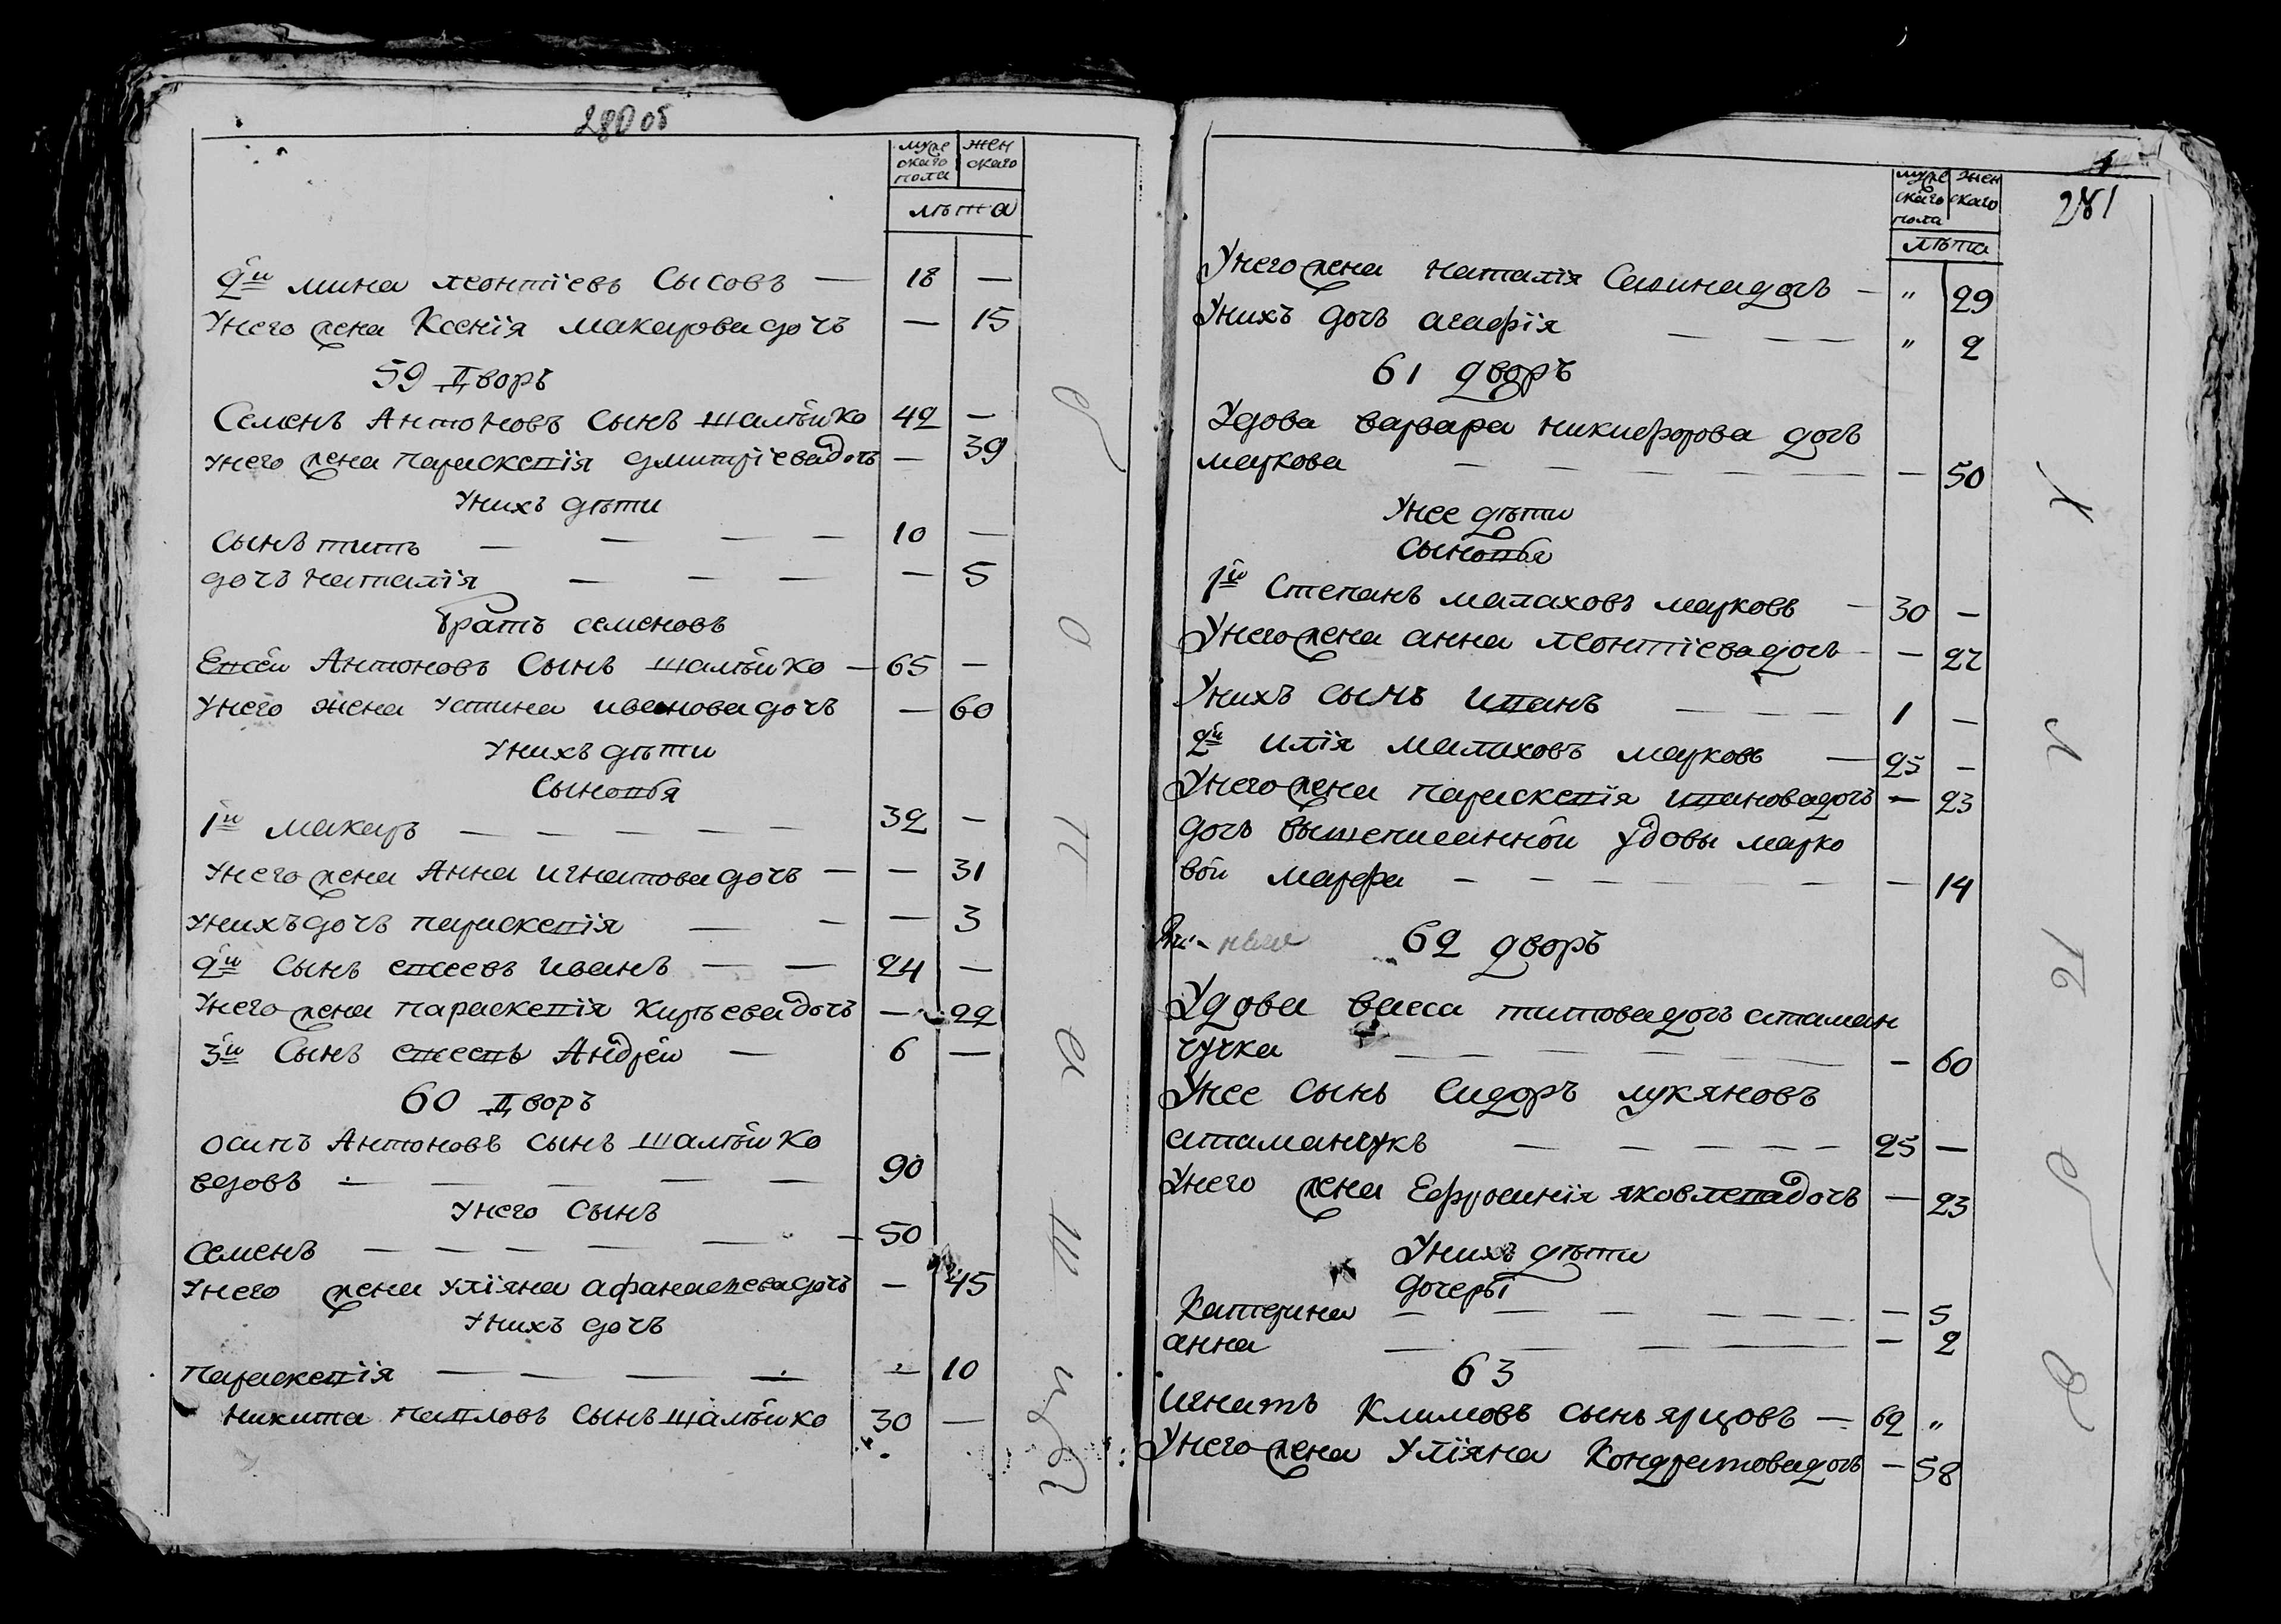 280 об
муже
скаго
пола
жен
скаго
лѣта
2й мина леонтіевъ Сысовъ — 18 —
Унего жена Ксенія макарова дочъ — 15
59 Дворъ
Семенъ Антоновъ Сынъ шалѣйко 42 —
унего жена параскепія дмитріева дочъ — 39
Унихъ дѣти
сынъ титъ — — — — 10 —
дочъ наталія — — — — 5
Братъ семеновъ
Епсей Антоновъ Сынъ шалѣйко — 65 —
Унего жена устина иванова дочъ — 60
Унихъ дѣти
Сынопья
1й макаръ — — — — — 32 —
унего жена Анна игнатова дочъ — — 31
унихъ дочъ параскепія — — — 3
2й сынъ епсеевъ иванъ — — 24 —
Унего жена параскепія Кирѣева дочъ — 22
3й Сынъ епсеепъ Андрей — 6 —
60 Дворъ
осипъ Антоновъ сынъ шалѣйко
вдовъ — — — — — 90
Унего Сынъ
Семенъ — — — — — — 50
Унего жена Уліяна афанасіева дочъ — 45
Унихъ дочъ
параскепія — — — — — 10
никита папловъ сынъ шалѣйко 30 —
о п а
281
муже
скаго
пола
жен
скаго
лѣта
Унего жена наталія Сапина дочъ — " 29
Унихъ дочъ агафія — — — " 2
61 дворъ
Удова варвара никифорова дочъ
маркова — — — — — — 50
Унее дѣти
Сынопья
1й Степанъ малаховъ марковъ — 30 —
Унего жена анна леонтіева дочъ — — 27
Унихъ сынъ ипанъ — — — 1 —
2й илія малаховъ марковъ — 25 —
Унего жена параскепія ипанова дочъ — 23
дочъ вышеписанной удовы марко
вой марфа — — — — — — — 14
62 дворъ
Удова васса титова дочъ атаман
чучка — — — — — — 60
Унее сынъ Сидоръ лукяновъ
атаманчукъ — — — — — 25 —
Унего жена Ефросинія яковлепа дочъ — 23
Унихъ дѣти
дочеры
Катерина — — — — — — — 5
анна — — — — — — 2
63
игнатъ Климовъ сынъ ярцовъ — 62 "
Унего жена Уліяна Кондратова дочъ — 58